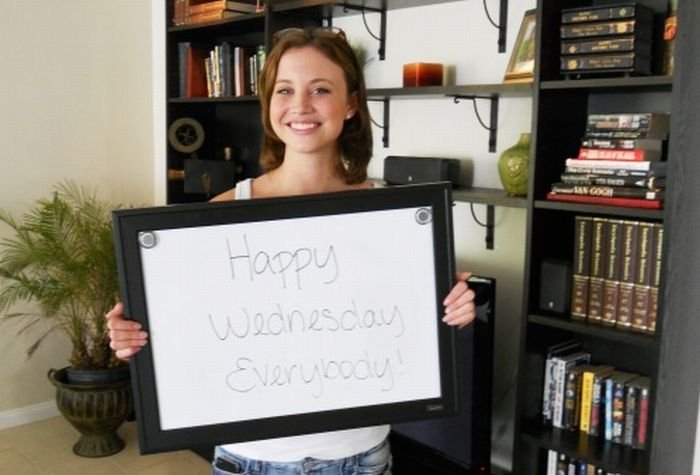 Happy
Wednesday
Everybody!
VAN GOGH